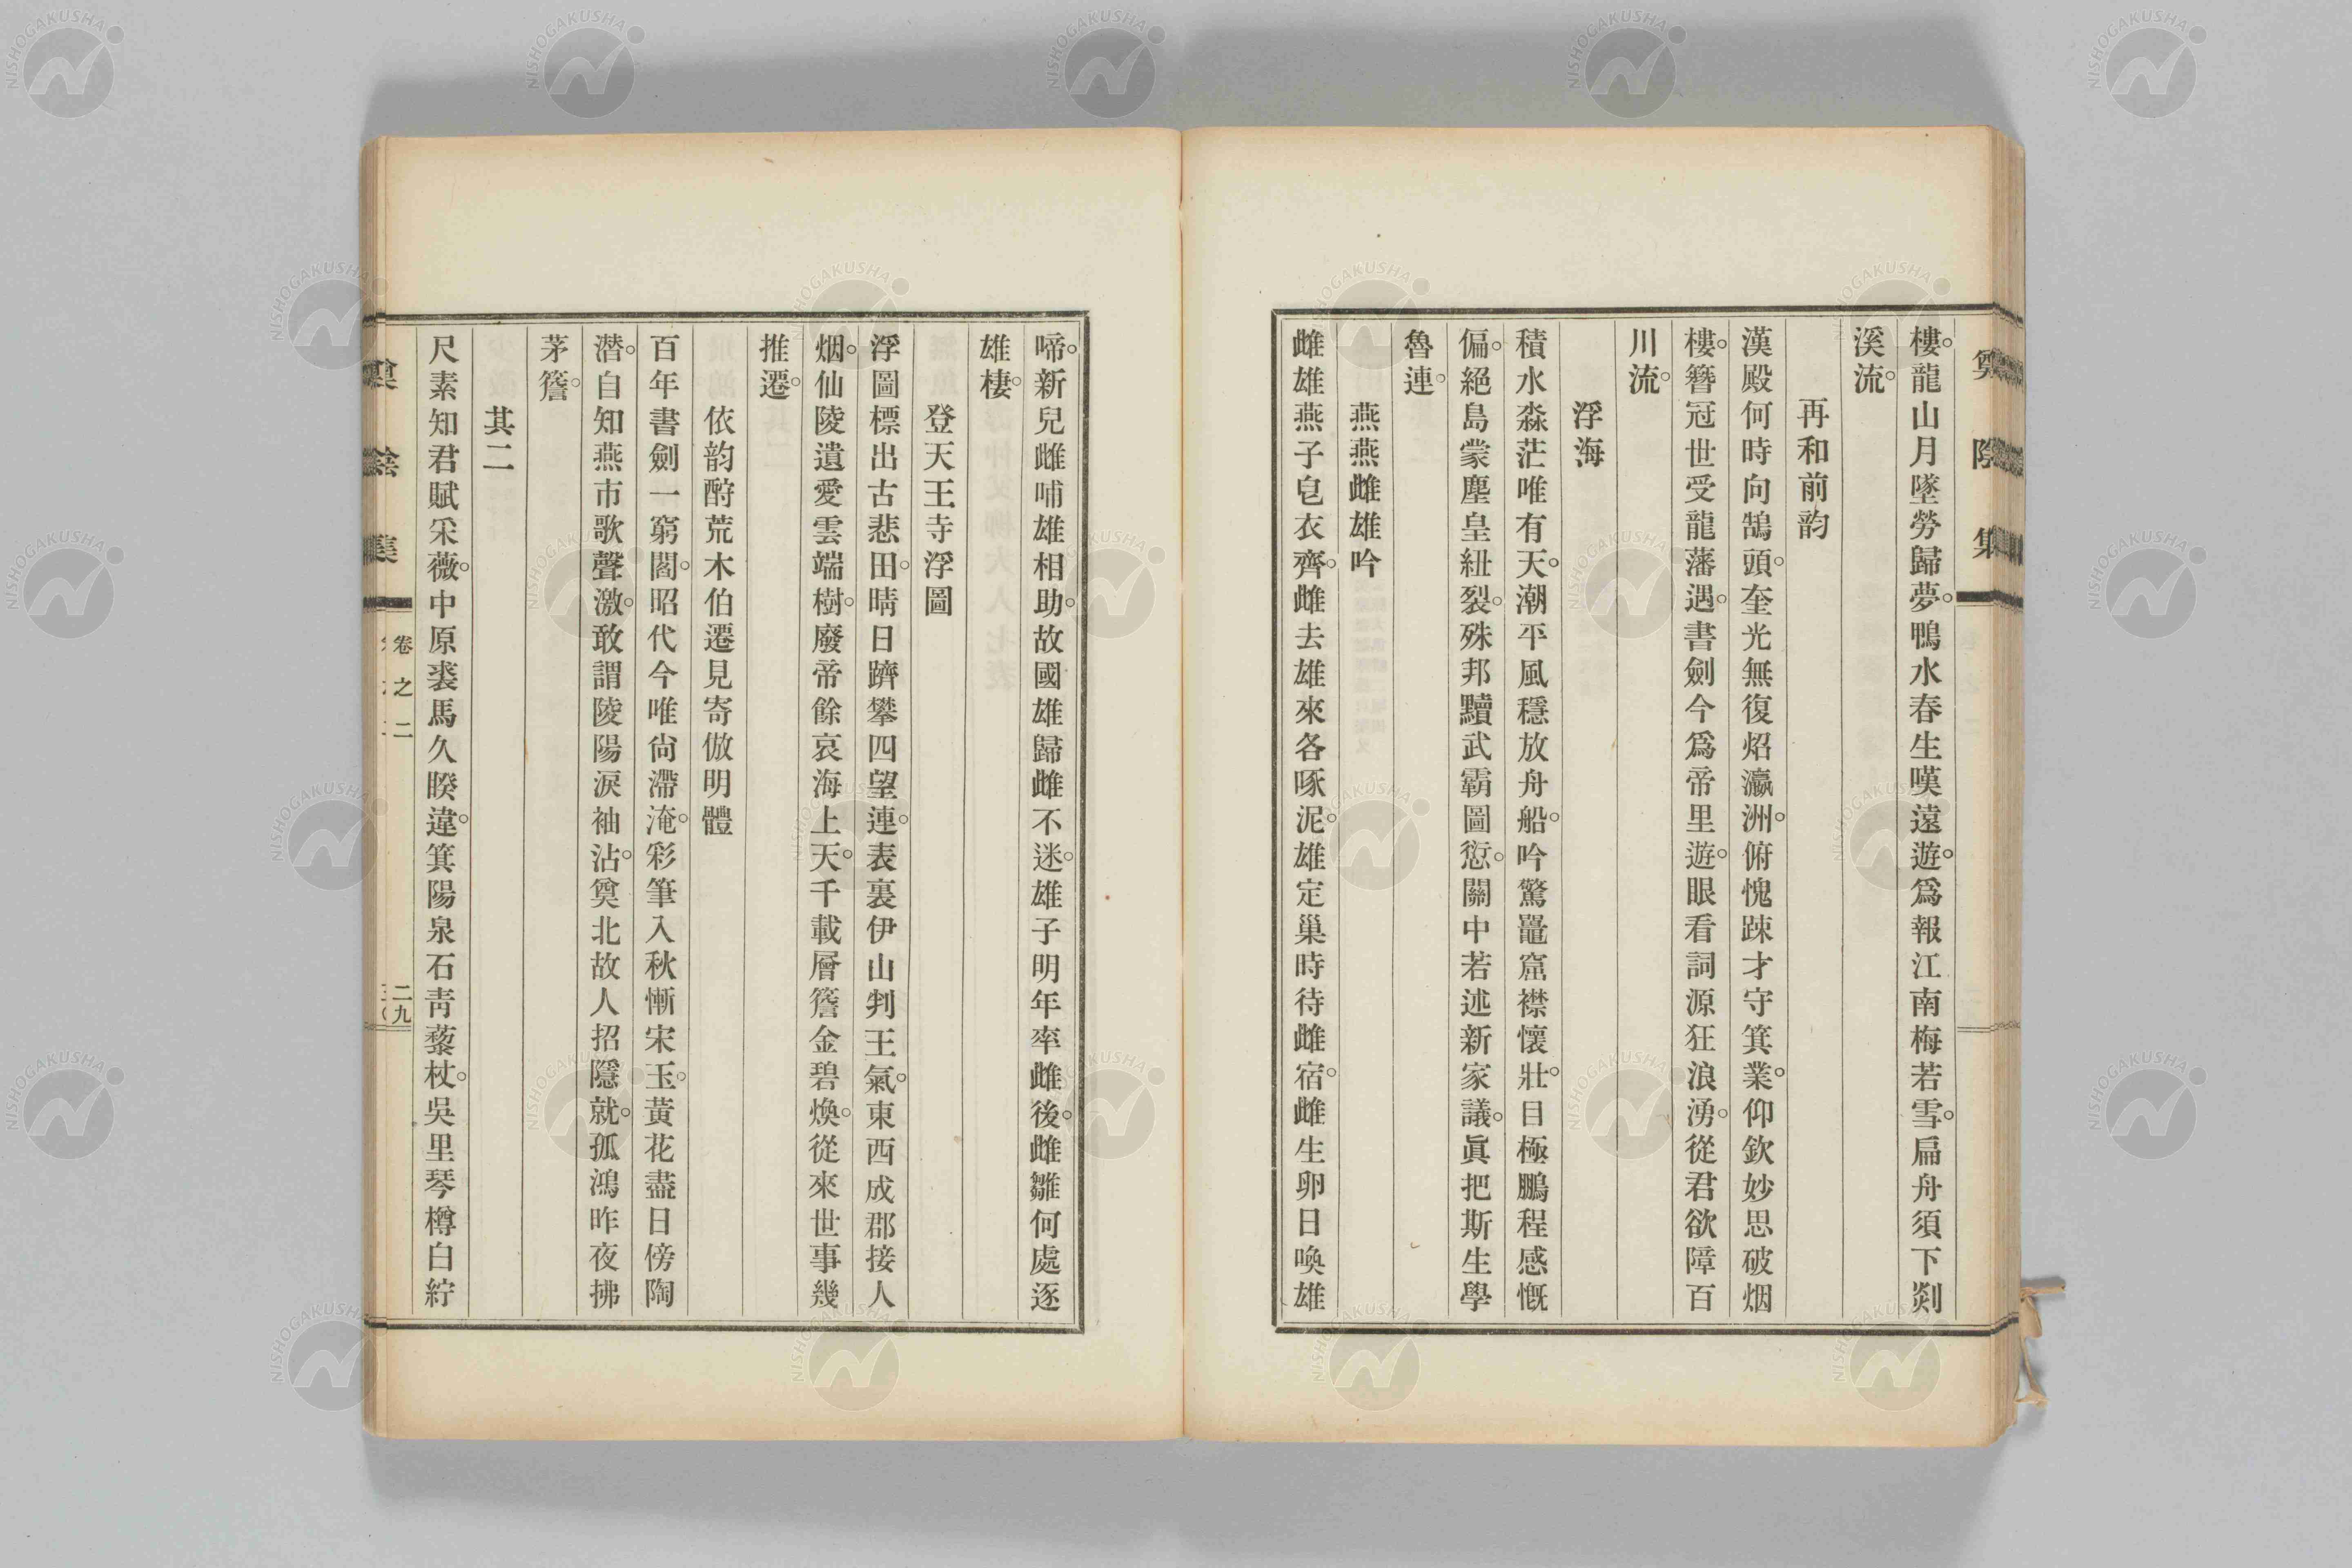 樓。龍山月墜勞歸夢。鴨水春生嘆遠遊。爲報江南梅若雪。扁舟須下剡
溪流。
再和前韵
漢殿何時向鵠頭。奎光無復炤瀛洲。俯愧踈才守箕業。仰欽妙思破烟
樓。簪冠世受龍藩遇。書劍今爲帝里遊。眼看詞源狂浪湧。從君欲障百
川流。
浮海
積水淼茫唯有天。潮平風穩放舟船。吟驚鼉窟襟懷壯。目極鵬程感慨
偏。絕島蒙塵皇紐裂。殊邦黷武霸圖愆。關中若述新家議。眞把斯生學
魯連。
燕燕雌雄吟
雌雄燕子皂衣齊。雌去雄來各啄泥。雄定巢時待雌宿。雌生卵日喚雄
啼。新兒雌哺雄相助。故國雄歸雌不迷。雄子明年率雌後。雌雛何處逐
雄棲。
登天王寺浮圖
浮圖標出古悲田。晴日躋攀四望連。表裏伊山判王氣。東西成郡接人
烟。仙陵遺愛雲端樹。廢帝餘哀海上天。千載層簷金碧煥。從來世事幾
推遷。
依韵酧荒木伯遷見寄倣明體
百年書劍一窮閻。昭代今唯尙滯淹。彩筆入秋慚宋玉。黃花盡日傍陶
潛。自知燕市歌聲激。敢謂陵陽淚袖沾。奠北故人招隱就。孤鴻昨夜拂
茅簷。
其二
尺素知君賦采薇。中原裘馬久睽違。箕陽泉石靑藜杖。吳里琴樽白紵
卷之二
二九
NISHOGAKUSHA